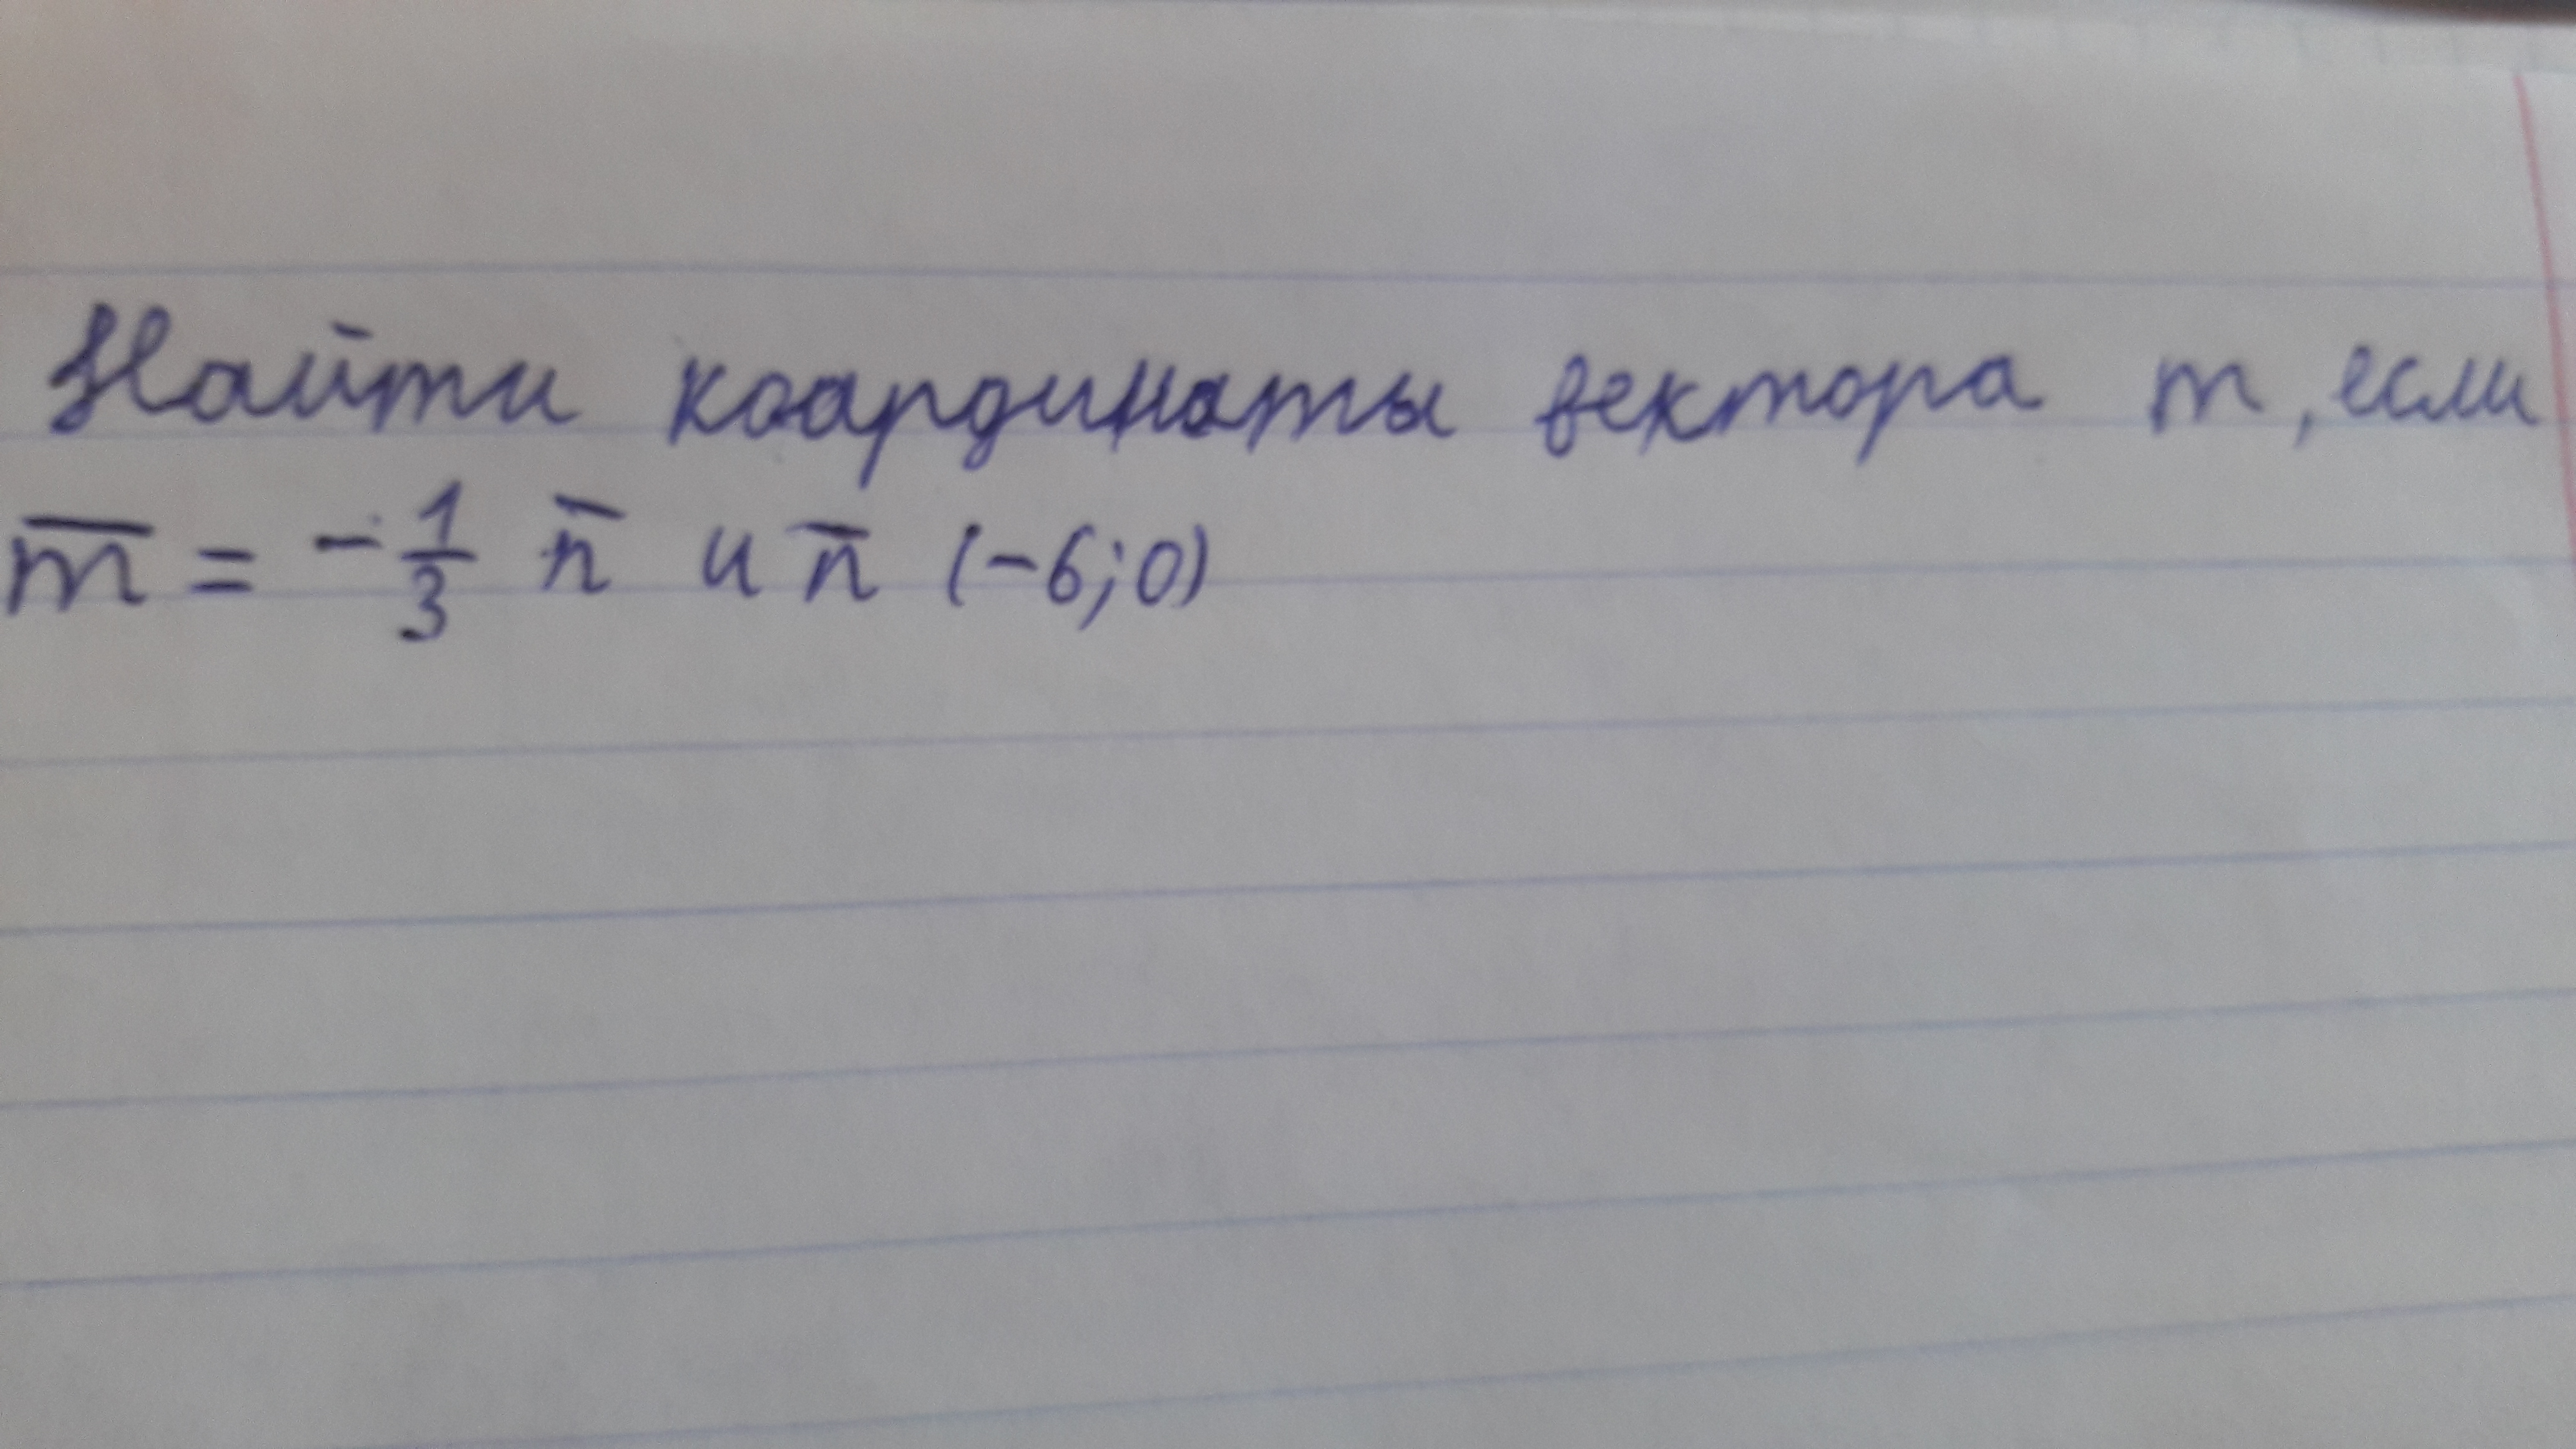 Найти коардинаты вектора m, если
m̅ = -1/3 n̅ и n̅ (-6;0)